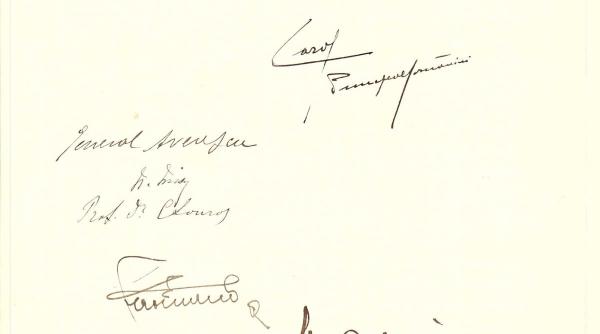 Carol
Principele României
General Averescu
Prof. Dr. C Louros
Ferdinand